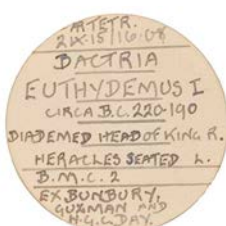 AR TETR.
21·X·15/16·08
BACTRIA
EUTHYDEMUS I
CIRCA B.C. 220-190
DIADEMED HEAD OF KING R.
HERACLES SEATED L.
B.M.C. 2
EX BUNBURY,
GUZMAN AND
H.G.C. DAY.